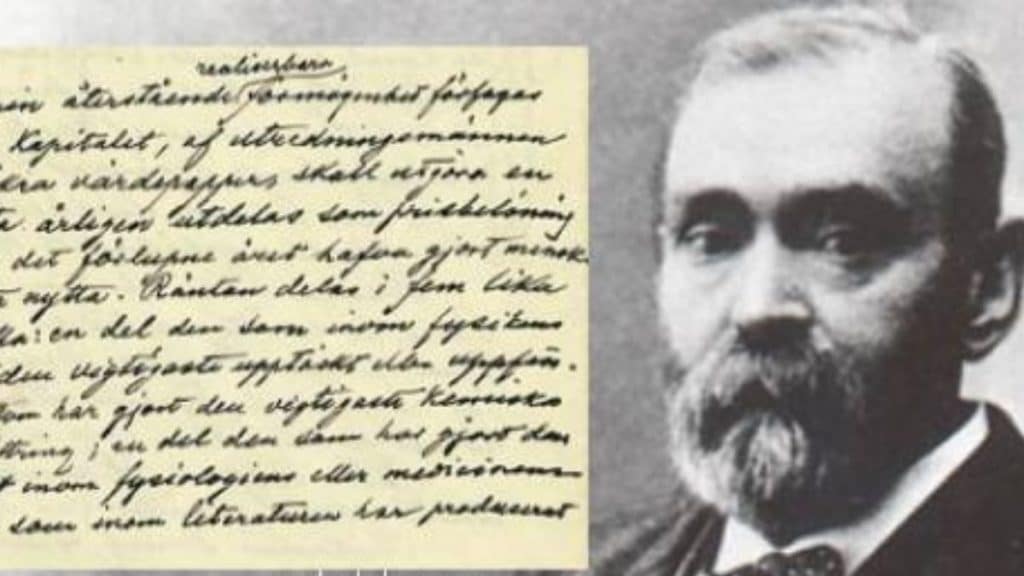 realiserbara
in återstående förmögenhet förfogas
Kapitalet, af utredningsmännen
kra värdepapper, skall utgöra en
ta årligen utdelas som prisbelöning
det förlupne året hafva gjort mensk
nytta. Räntan delas i fem lika
lla: en del den som inom fysikens
den vigtigaste upptäckt eller uppfin-
som har gjort den vigtigaste kemiska
ttring; en del den som har gjort den
t inom fysiologiens eller medicinens
som inom literaturen har producerat